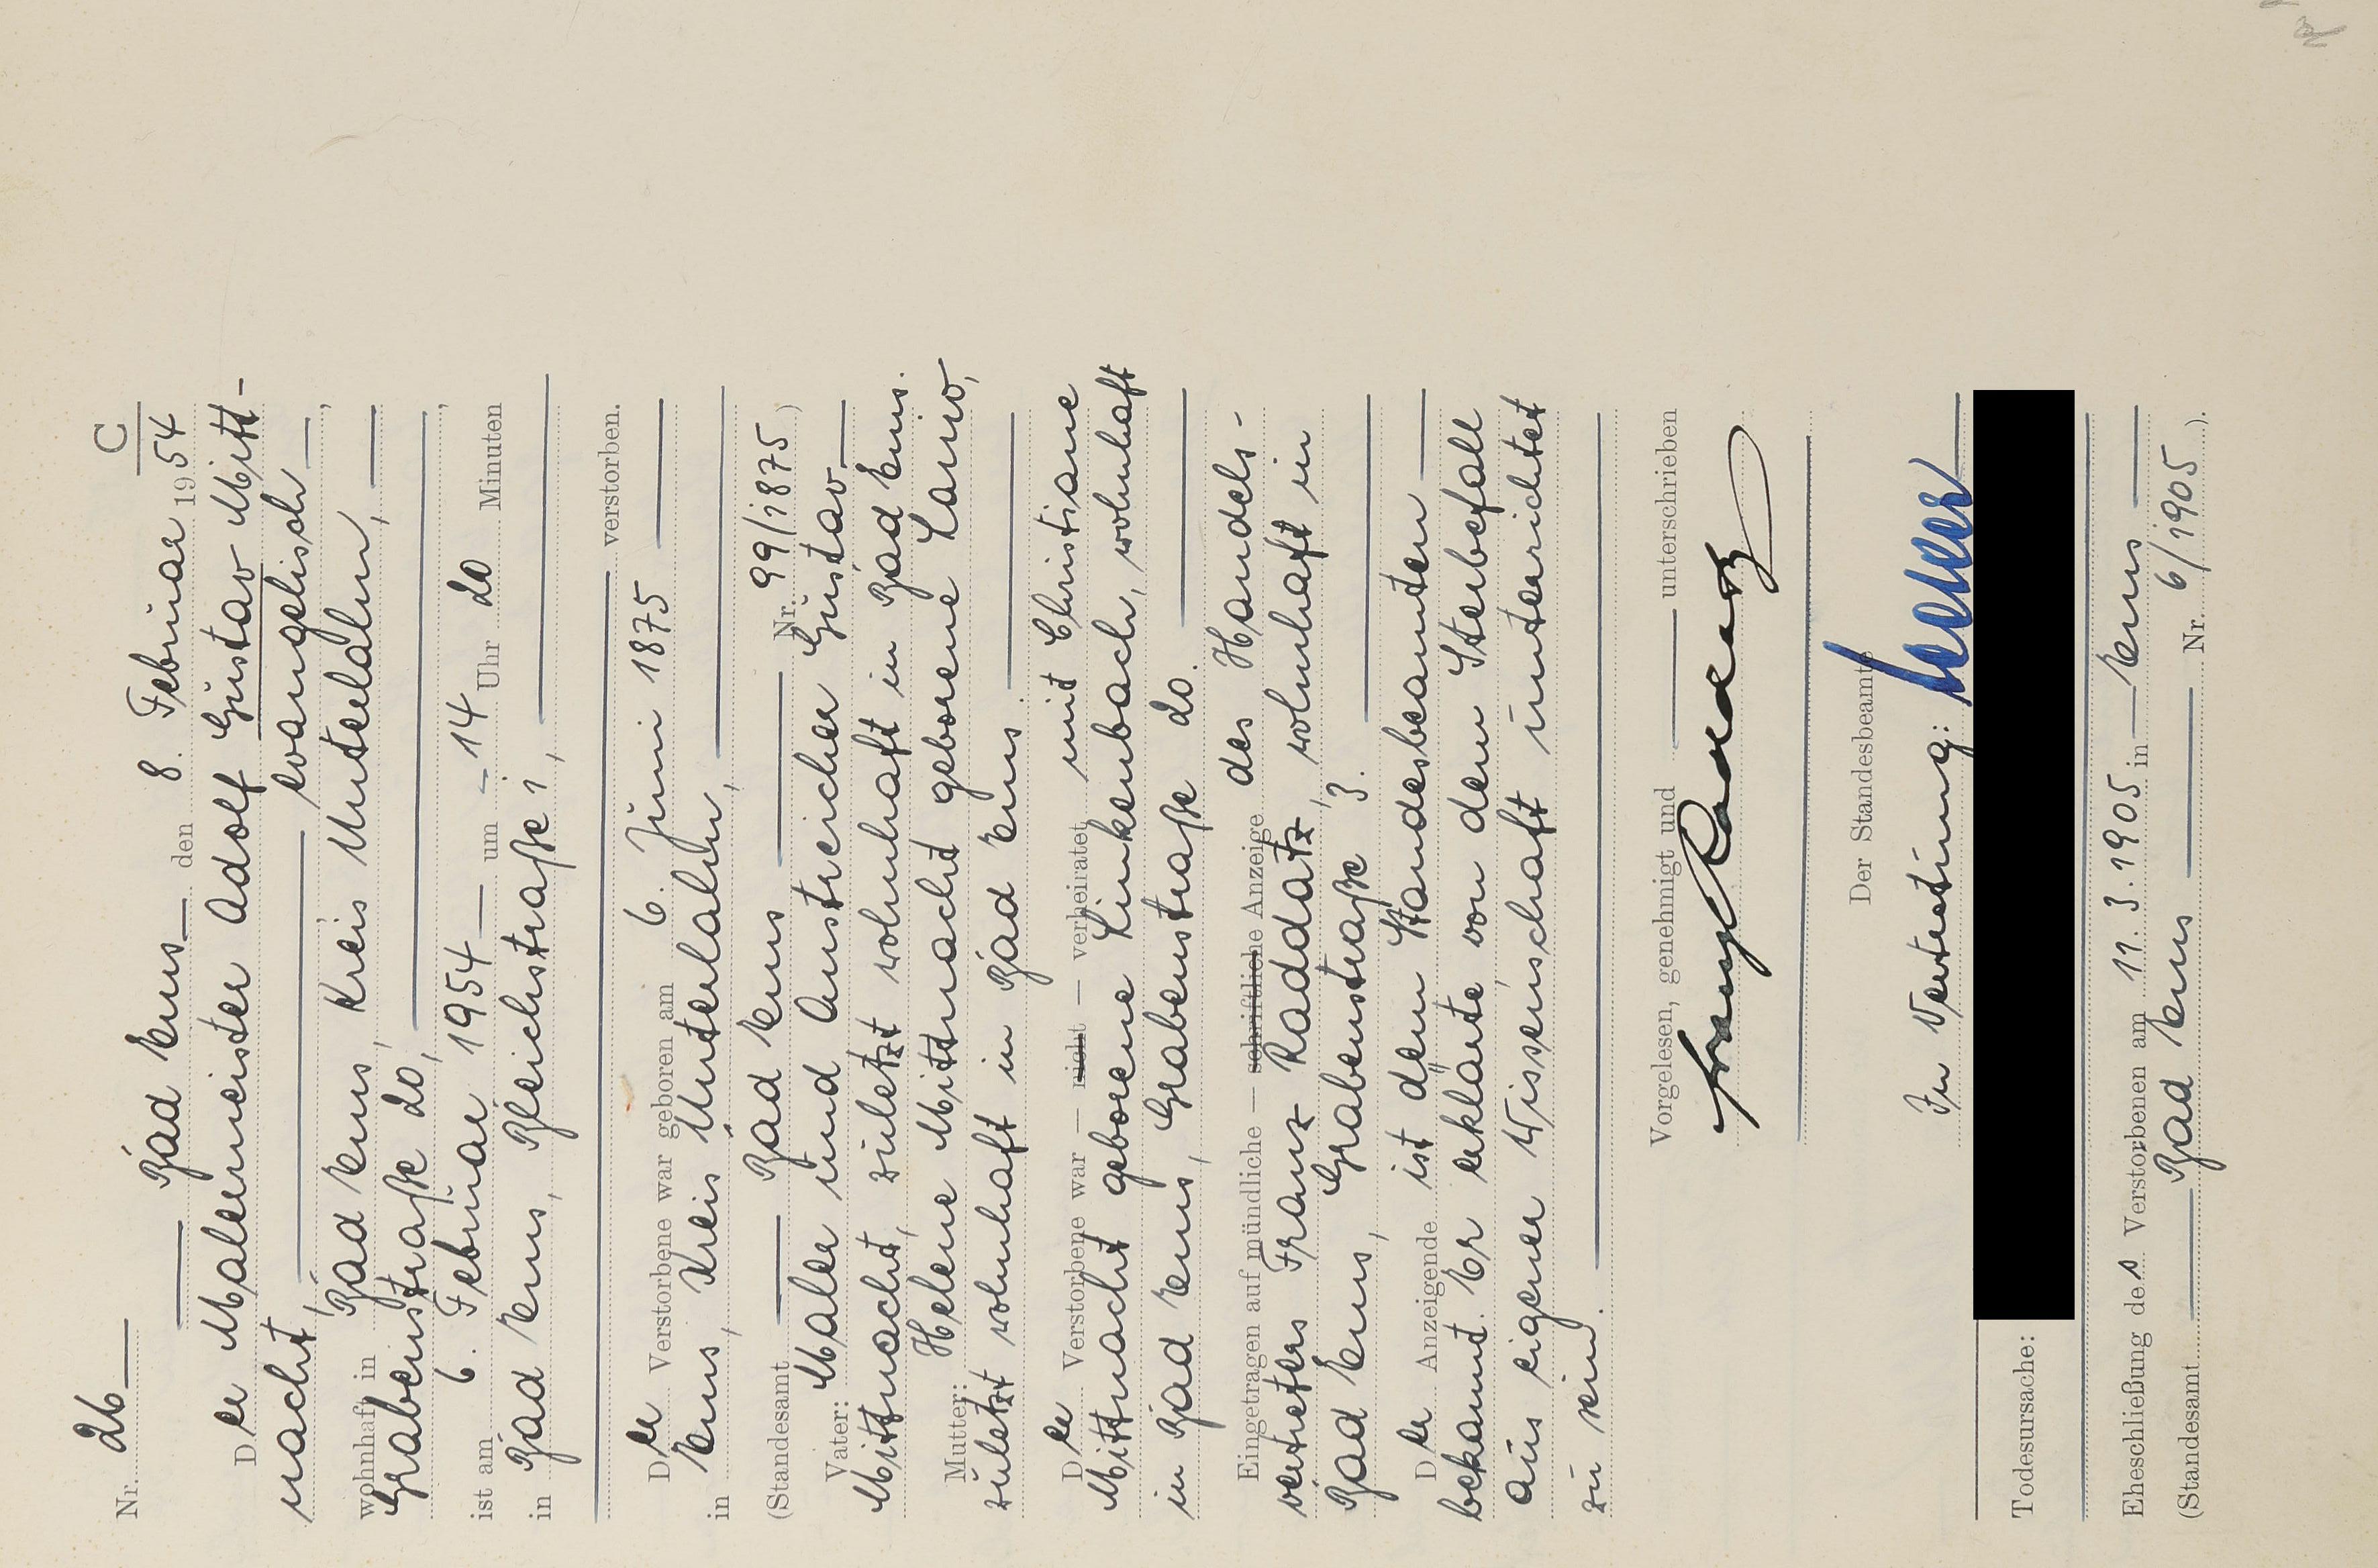 C
Nr. 26
Bad Ems den 8. Februar 1954
Der Malermeister Adolf Gustav Mitt-
nacht, evangelisch,
wohnhaft in Bad Ems, Kreis Unterlahn,
Grabenstraße 20,
ist am 6. Februar 1954 um 14 Uhr 20 Minuten
in Bad Ems, Bleichstraße 1,
verstorben.
Der Verstorbene war geboren am 6. Juni 1875
in Ems, Kreis Unterlahn,
(Standesamt Bad Ems Nr. 99/1875)
Vater: Maler und Anstreicher Gustav
Mittnacht, zuletzt wohnhaft in Bad Ems.
Mutter: Helene Mittnacht geborene
zuletzt wohnhaft in Bad Ems.
Der Verstorbene war — nicht — verheiratet mit Christiane
Mittnacht geborene Linkenbach, wohnhaft
in Bad Ems, Grabenstraße 20.
Eingetragen auf mündliche — schriftliche Anzeige des Handels-
vertreters Franz Raddatz, wohnhaft in
Bad Ems, Grabenstraße 3.
Der Anzeigende ist dem Standesbeamten
bekannt. Er erklärte von dem Sterbefall
aus eigener Wissenschaft unterrichtet
zu sein.
Vorgelesen, genehmigt und unterschrieben
Franz Raddatz
Der Standesbeamte
In Vertretung:
Todesursache:
Eheschließung des Verstorbenen am 11.3.1905 in Ems
(Standesamt Bad Ems Nr. 6/1905).